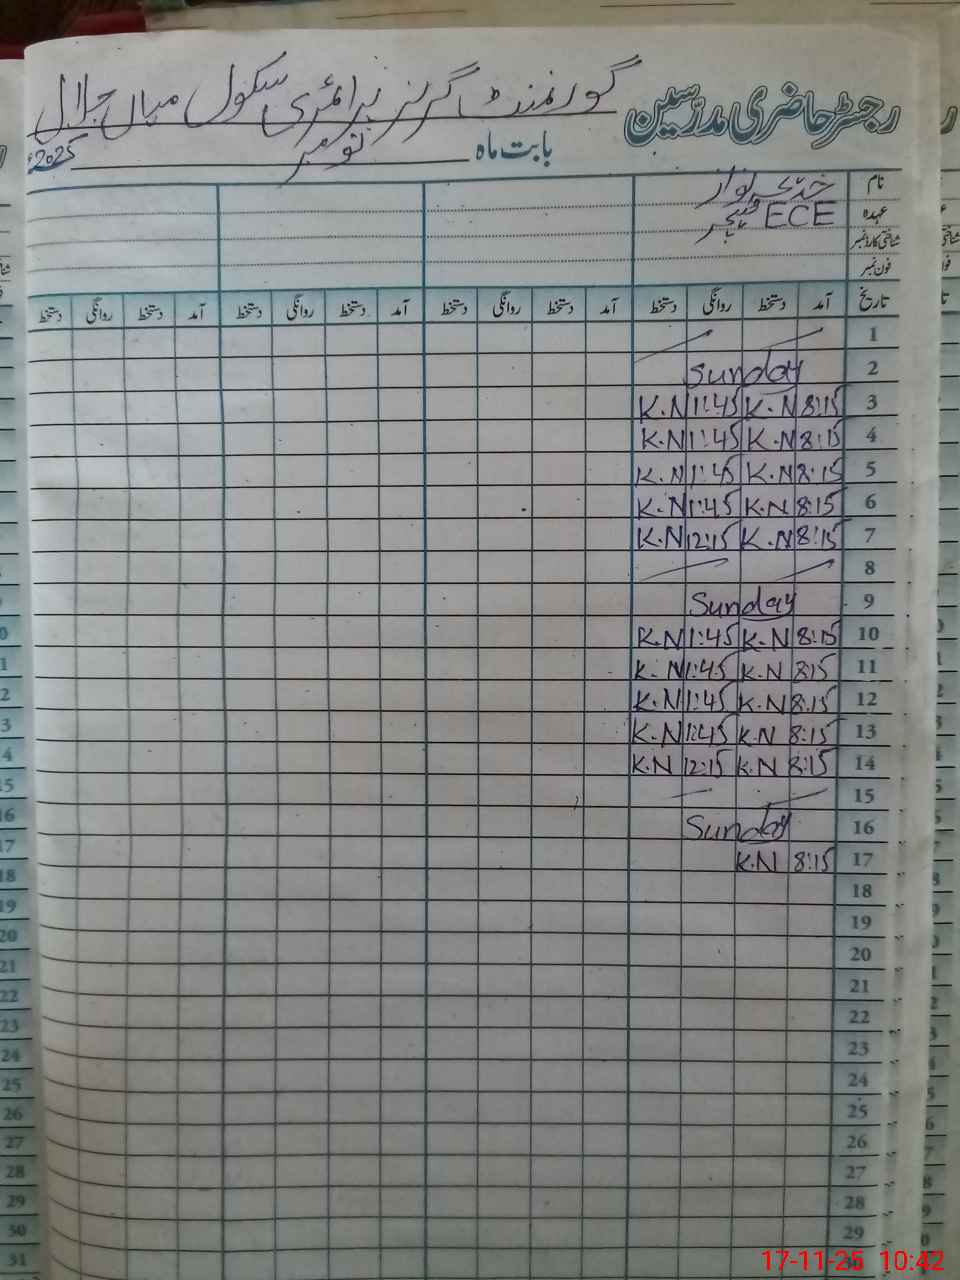 رجسٹر حاضری مدرسین گورنمنٹ گرلز پرائمری سکول میاں جلال
بابت ماہ نومبر 2025ء
نام خدیجہ نواز
عہدہ ECE ٹیچر
شناختی کارڈ نمبر
فون نمبر
تاریخ آمد دستخط روانگی دستخط آمد دستخط روانگی دستخط آمد دستخط روانگی دستخط آمد دستخط روانگی دستخط
1
2 Sunday
3 8:15 K.N 1:45 K.N
4 8:15 K.N 1:45 K.N
5 8:15 K.N 1:45 K.N
6 8:15 K.N 1:45 K.N
7 8:15 K.N 12:15 K.N
8
9 Sunday
10 8:15 K.N 1:45 K.N
11 8:15 K.N 1:45 K.N
12 8:15 K.N 1:45 K.N
13 8:15 K.N 1:45 K.N
14 8:15 K.N 12:15 K.N
15
16 Sunday
17 8:15 K.N
18
19
20
21
22
23
24
25
26
27
28
29
17-11-25 10:42